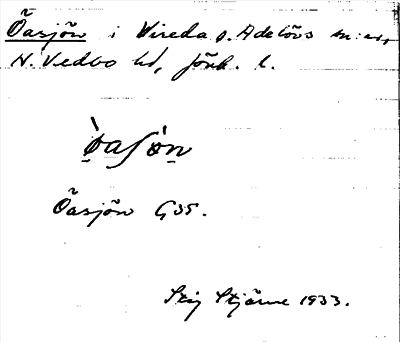 Öasjön i Vireda o. Adelövs sn:ar,
N. Vedbo hd, Jönk. l.
ò̱aʃȯṉ
Öasjön GSK.
Stig Stjärne 1933.